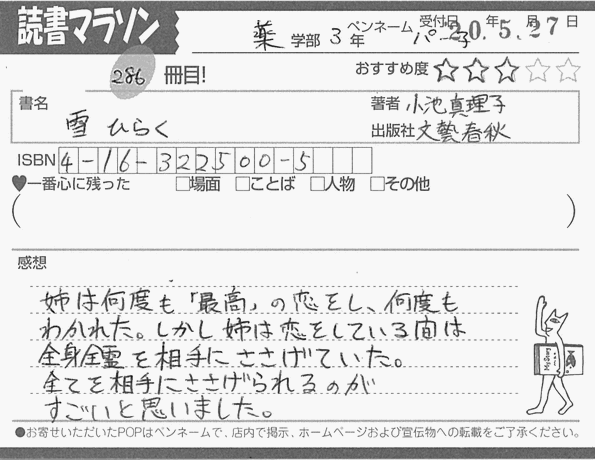 読書マラソン
薬 学部 3 年 ペンネーム パー子 受付日 20年.5月.27日
286 冊目! おすすめ度 ☆☆☆☆☆
書名 雪ひらく
著者 小池真理子
出版社 文藝春秋
ISBN 4-16-322500-5
♥一番心に残った □場面 □ことば □人物 □その他
( )
感想
姉は何度も「最高」の恋をし、何度も
わかれた。しかし姉は恋をしている間は
全身全霊を相手にささげていた。
全てを相手にささげられるのが
すごいと思いました。
●お寄せいただいたPOPはペンネームで、店内で掲示、ホームページおよび宣伝物への転載をご了承ください。